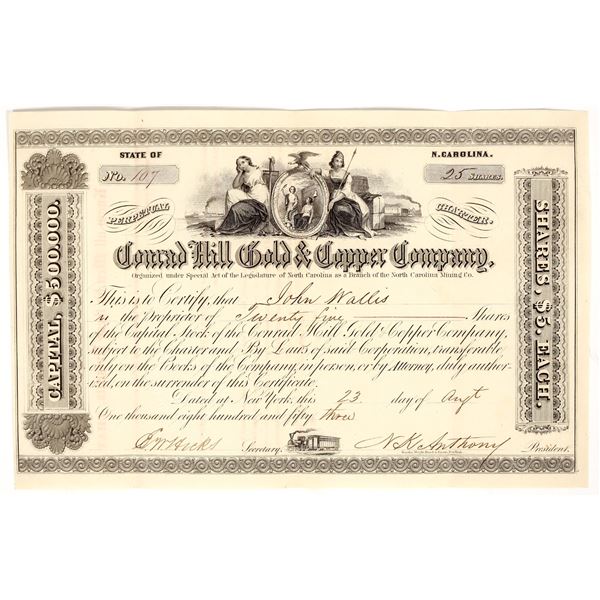 STATE OF N. CAROLINA.
No. 107 25 SHARES.
PERPETUAL CHARTER.
Conrad Hill Gold & Copper Company,
Organized under Special Act of the Legislature of North Carolina as a Branch of the North Carolina Mining Co.
This is to Certify, that John Wallis
is the Proprietor of Twenty five Shares
of the Capital Stock of the Conrad Hill Gold & Copper Company,
subject to the Charter and By Laws of said Corporation, transferable
only on the Books of the Company, in person, or by Attorney, duly author-
ized, on the surrender of this Certificate.
Dated at New York, this 23 day of Augt
One thousand eight hundred and fifty three
Secretary. N. K. Anthony President.
CAPITAL, $500,000.
SHARES, $5, EACH.